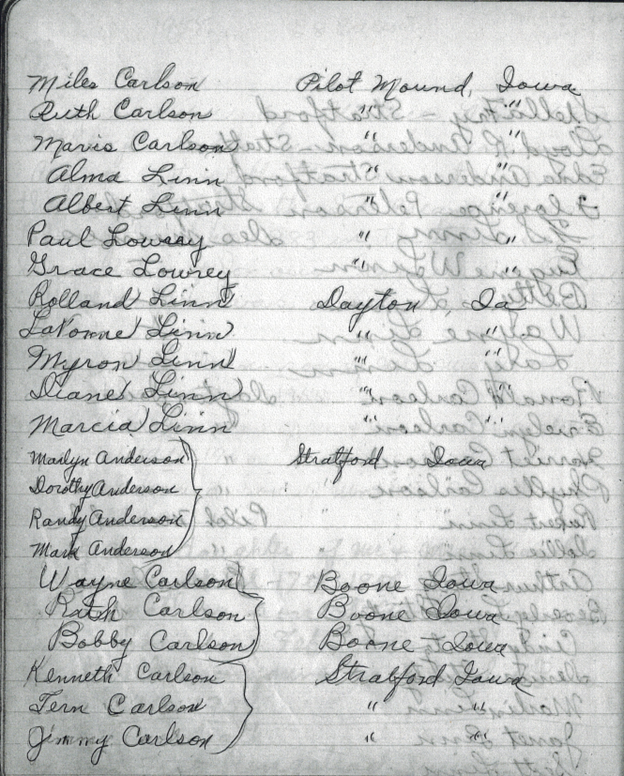 Miles Carlson Pilot Mound, Iowa
Ruth Carlson " "
Mavis Carlson " "
Alma Linn " "
Albert Linn " "
Paul Lowrey " "
Grace Lowrey " "
Rolland Linn Dayton, Ia
LaVonne Linn " "
Myron Linn " "
Diane Linn " "
Marcia Linn " "
Marlyn Anderson Stratford Iowa
Dorothy Anderson
Randy Anderson
Mark Anderson
Wayne Carlson Boone Iowa
Ruth Carlson Boone Iowa
Bobby Carlson Boone Iowa
Kenneth Carlson Stratford Iowa
Fern Carlson " "
Jimmy Carlson " "